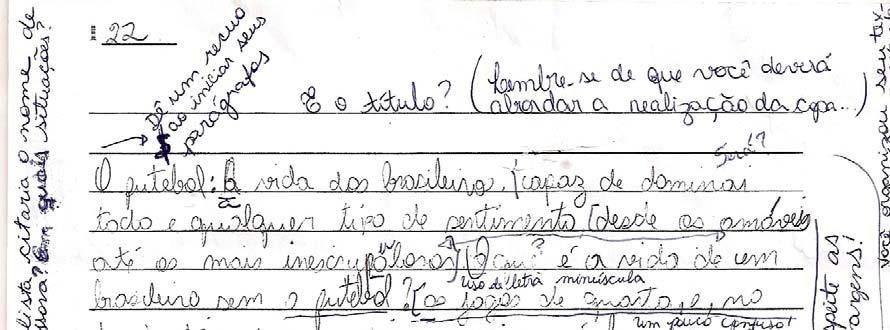 lista citaria o nome de
sora? Em quais situações?
22
Dê um recuo
ao iniciar seus
parágrafos
E o título? (Lembre-se de que você deverá
abordar a realização da copa...)
Será?
O futebol: a vida dos brasileiros, capaz de dominar
todo e qualquer tipo de sentimento (desde os amáveis
até os mais inescrupulosos) O que? é a vida de um
uso de letra minúscula
brasileiro sem o futebol? os jogos de quarta, e, no
um pouco confuso!
peite as
argens!
você organizou seu tex-